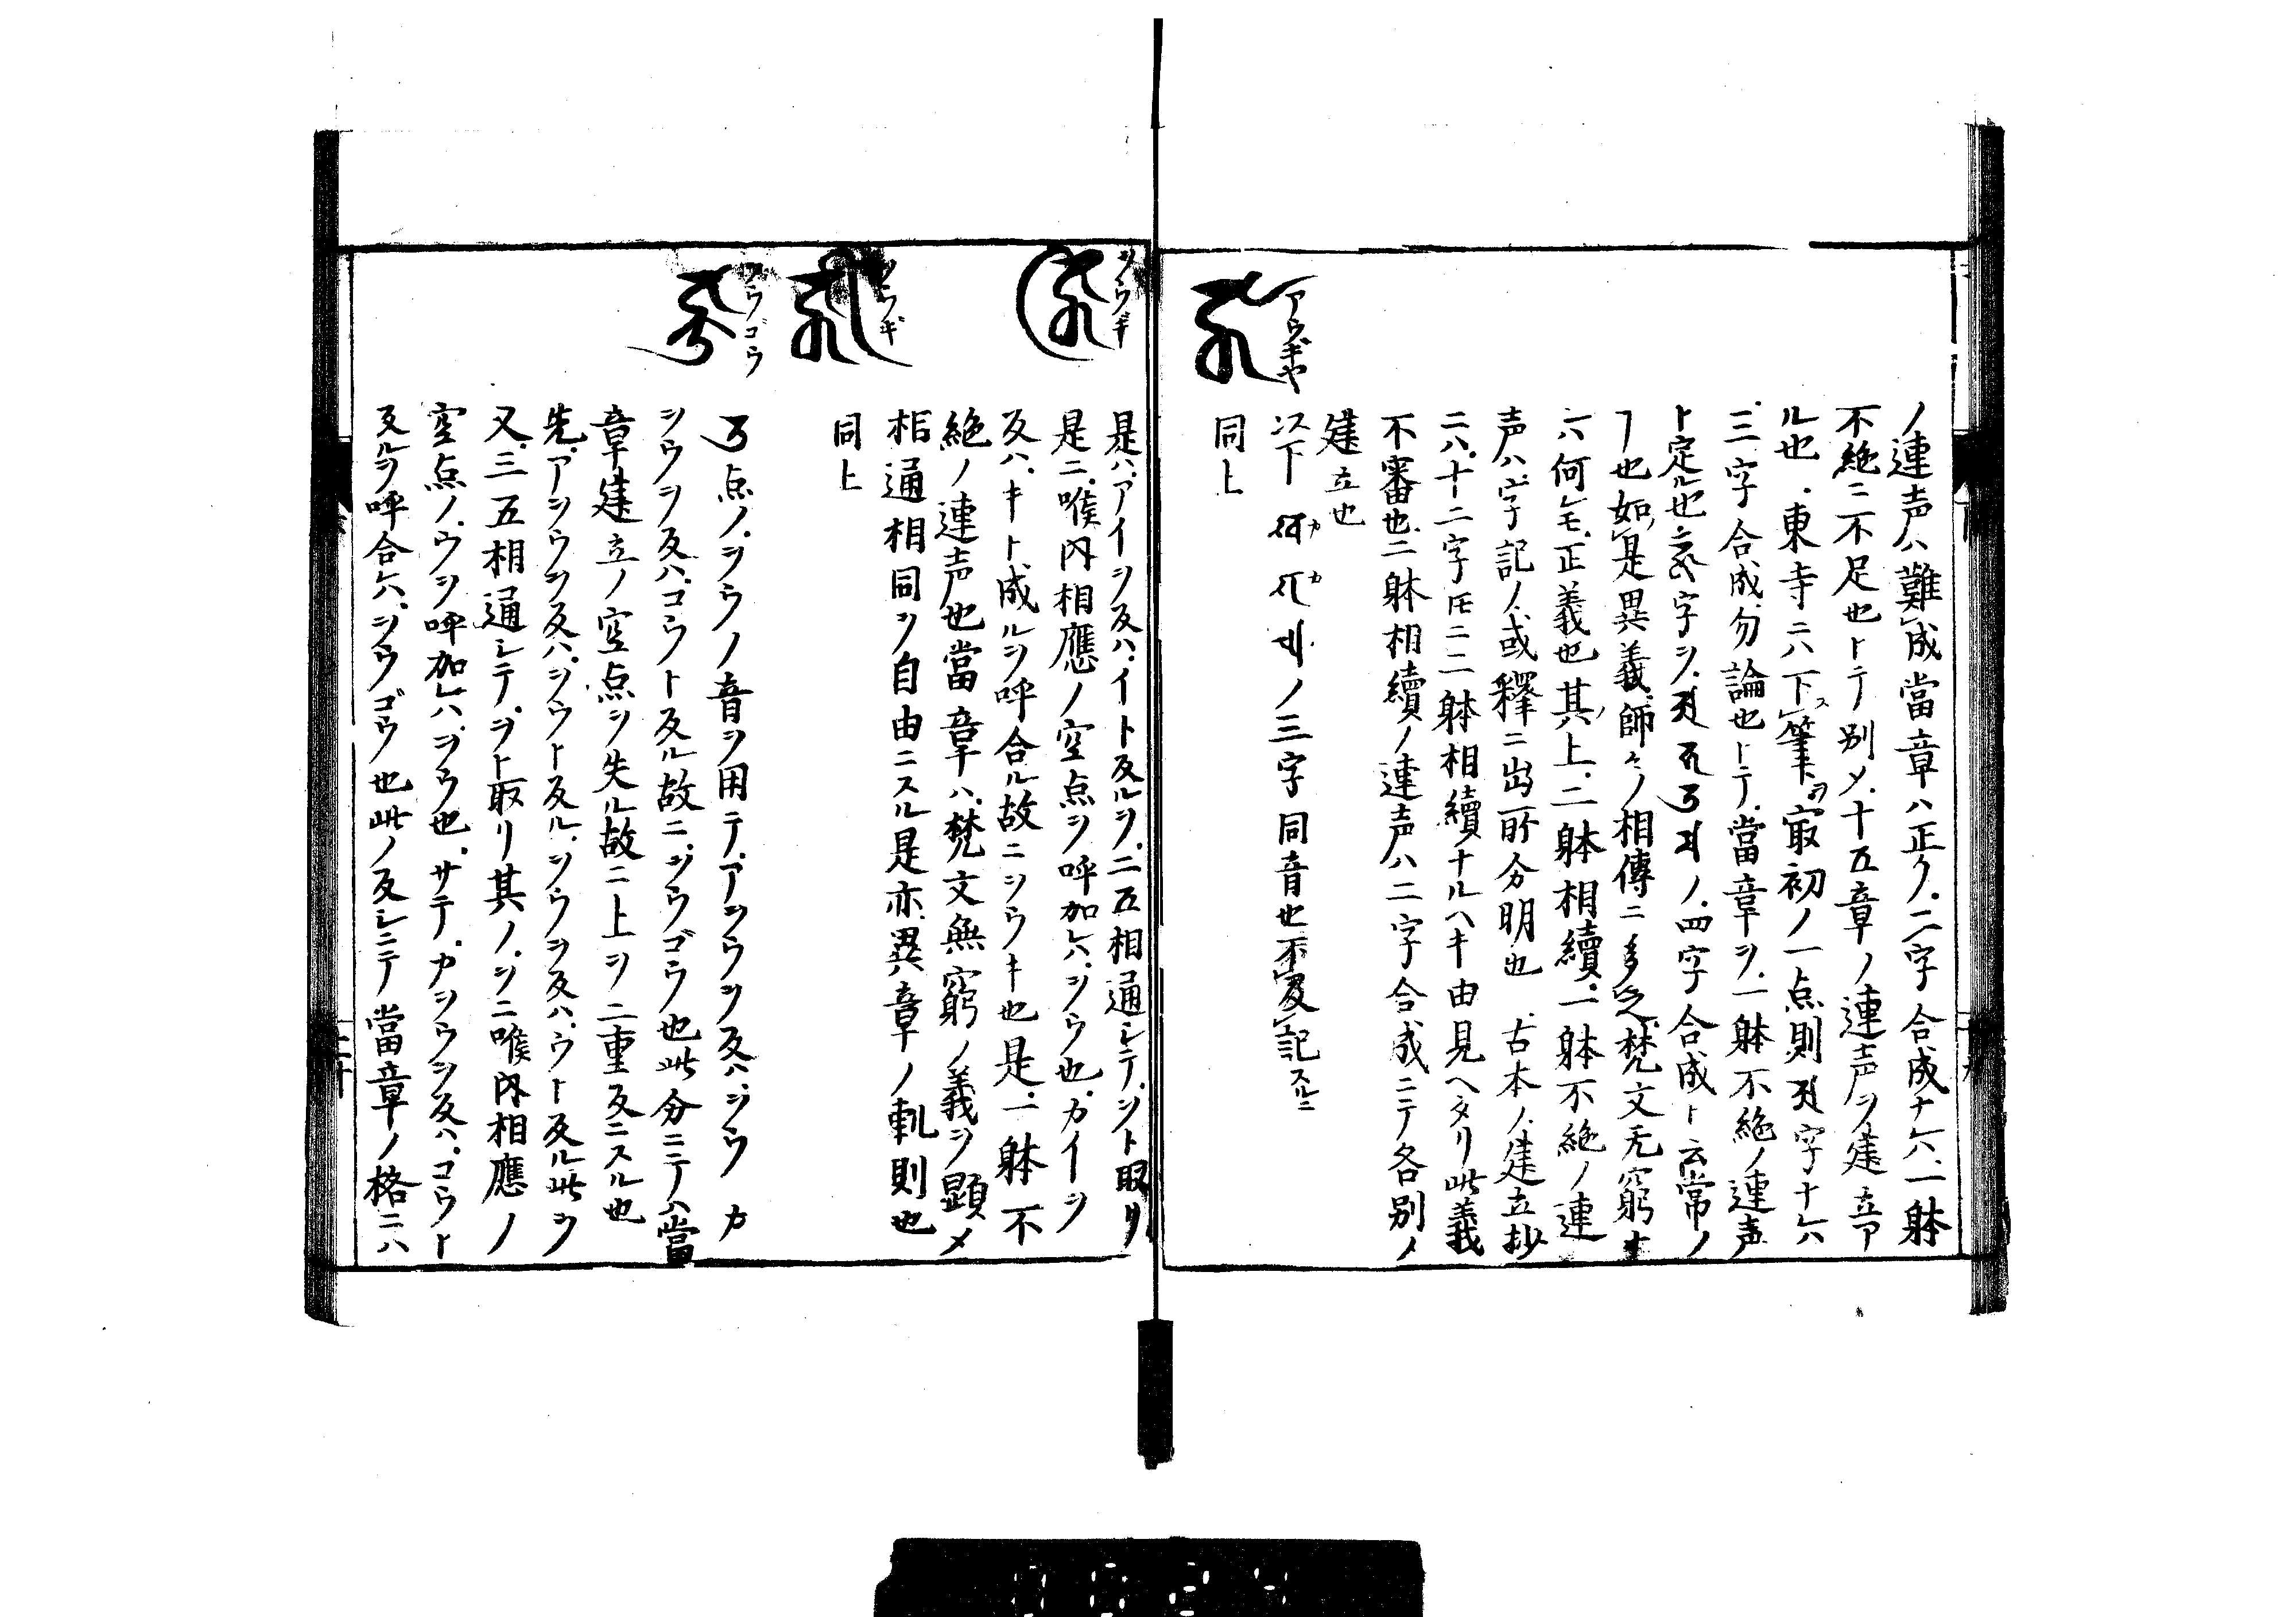 ノ連声ハ難成當章ハ正ク二字合成ナレハ一躰
不絶ニ不足也トテ別メ十五章ノ連声ヲ建立ア
ル也東寺ニハ下筆ヲ寂初ノ一点則 字ナレハ
三字合成勿論也トテ當章ヲ一躰不絶ノ連声
ト定ル也 字ヲ ノ四字合成ト云常ノ
也如是異義師々ノ相傳ニ多之梵文无窮ナ
レハ何レモ正義也其上二躰相續一躰不絶ノ連
声ハ字記ノ或釋ニ出所分明也古本ノ建立抄
ニハ十二字モニ二躰相續ナルヘキ由見ヘタリ此義
不審也二躰相續ノ連声ハ二字合成ニテ各別ノ
建立也
アウギヤ
以下 ノ三字同音也不及記スルニ
同上
ヲウギ
是ハアイヲ反ハイト反ルヲ二五相通シテヲト取リ
是ニ喉内相應ノ空点ヲ呼加レハヲウ也カイヲ
反ハキト成ルヲ呼合ル故ニヲウキ也是一躰不
絶ノ連声也當章ハ梵文無窮ノ義ヲ顕メ
相通相同ヲ自由ニスル是亦異章ノ軌則也
同上
ヲウゴウ
点ノヲウノ音ヲ用テアヲウヲ反ハヲウカ
ヲウヲ反ハコウト反ル故ニヲウゴウ也此分ニテハ當
章建立ノ空点ヲ失ル故ニ上ヲ二重反ニスル也
先アヲウヲ反ハヲウト反ルヲウヲ反ハウト反ル此ヲ
又三五相通シテヲト取リ其ノヲニ喉内相應ノ
空点ノウヲ呼加レハヲウ也サテカヲウヲ反ハコウト
反ルヲ呼合レハヲウゴウ也此ノ反シニテ當章ノ格ニハ